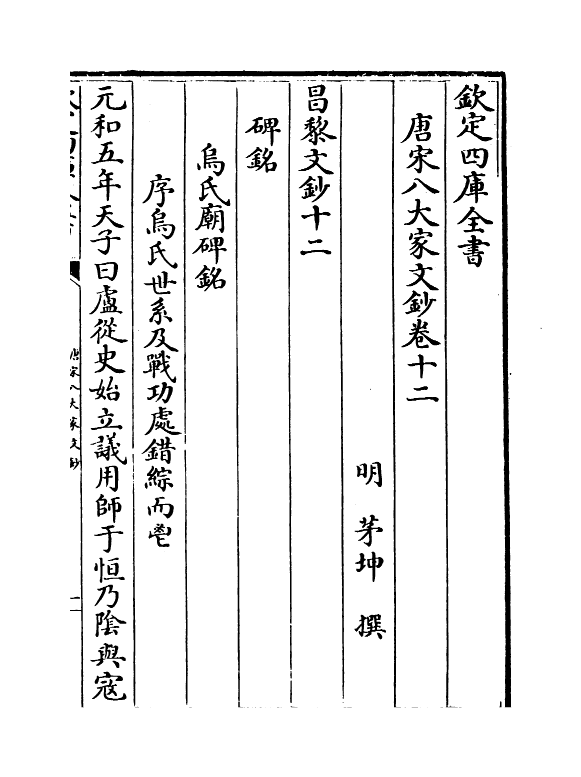 欽定四庫全書
唐宋八大家文鈔卷十二
明 茅坤 撰
昌黎文鈔十二
碑銘
烏氏廟碑銘
序烏氏世系及戰功處錯綜而鬯
元和五年天子曰盧從史始立議用師于恒乃陰與寇
唐宋八大家文鈔